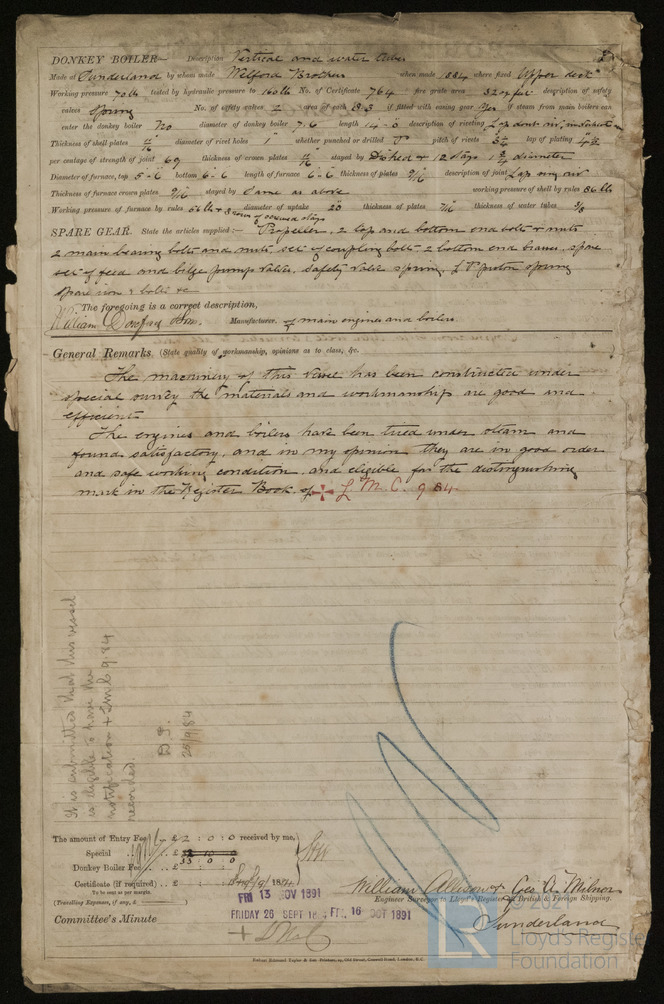 DONKEY BOILER— Description Vertical and water tubes
Made at Sunderland by whom made Welford Brothers when made 1884 where fixed Upper deck
Working pressure 70 lb tested by hydraulic pressure to 160 lb No. of Certificate 764 fire grate area 32 sq feet description of safety
valves Spring No. of safety valves 2 area of each if fitted with easing gear Yes if steam from main boilers can
enter the donkey boiler No diameter of donkey boiler 7-6 length 14-0 description of riveting Lap doub riv
Thickness of shell plates 11/16 diameter of rivet holes 1" whether punched or drilled P pitch of rivets lap of plating
per centage of strength of joint 69 thickness of crown plates 11/16 stayed by Dished & 12 Stays diameter
Diameter of furnace, top 5-6 bottom 6-6 length of furnace 6-6 thickness of plates 9/16 description of joint Lap sing riv
Thickness of furnace crown plates 9/16 stayed by Same as above working pressure of shell by rules 86 lb
Working pressure of furnace by rules & 3 rows of screwed stays diameter of uptake 20 thickness of plates 7/16 thickness of water tubes 3/8
SPARE GEAR. State the articles supplied:— Propeller, 2 top and bottom end bolts & nuts
2 main bearing bolts and nuts, set of coupling bolts 2 bottom end brasses, spare
set of feed and bilge pump valves, safety valve spring, L P piston springs
Spare iron & bolts &c
The foregoing is a correct description,
William Doxford & Sons. Manufacturer. of main engines and boilers.
General Remarks. (State quality of workmanship, opinions as to class, &c.
The machinery of this vessel has been constructed under
special survey the materials and workmanship are good and
efficient
The engines and boilers have been tried under steam and
found satisfactory, and in my opinion they are in good order
and safe working condition, and eligible for the distinguishing
mark in the Register Book of ✠ L M C. 9 84
It is submitted that this vessel
is eligible to have the
notification + LMC 9.84
recorded.
25/9/84
The amount of Entry Fee .. £ 2 : 0 : 0 received by me,
Special .. £
Donkey Boiler Fee .. £
Certificate (if required) .. £ : : 1884
To be sent as per margin.
(Travelling Expenses, if any, £
William Allison & Geo A. Milnor
Engineer Surveyor to Lloyd's Register of British & Foreign Shipping.
Sunderland
FRI 13 NOV 1891
FRIDAY 26 SEPT 1884 FRI. 16 OCT 1891
Committee's Minute
+ LMC
© 2021
LR
Lloyd's Register
Foundation